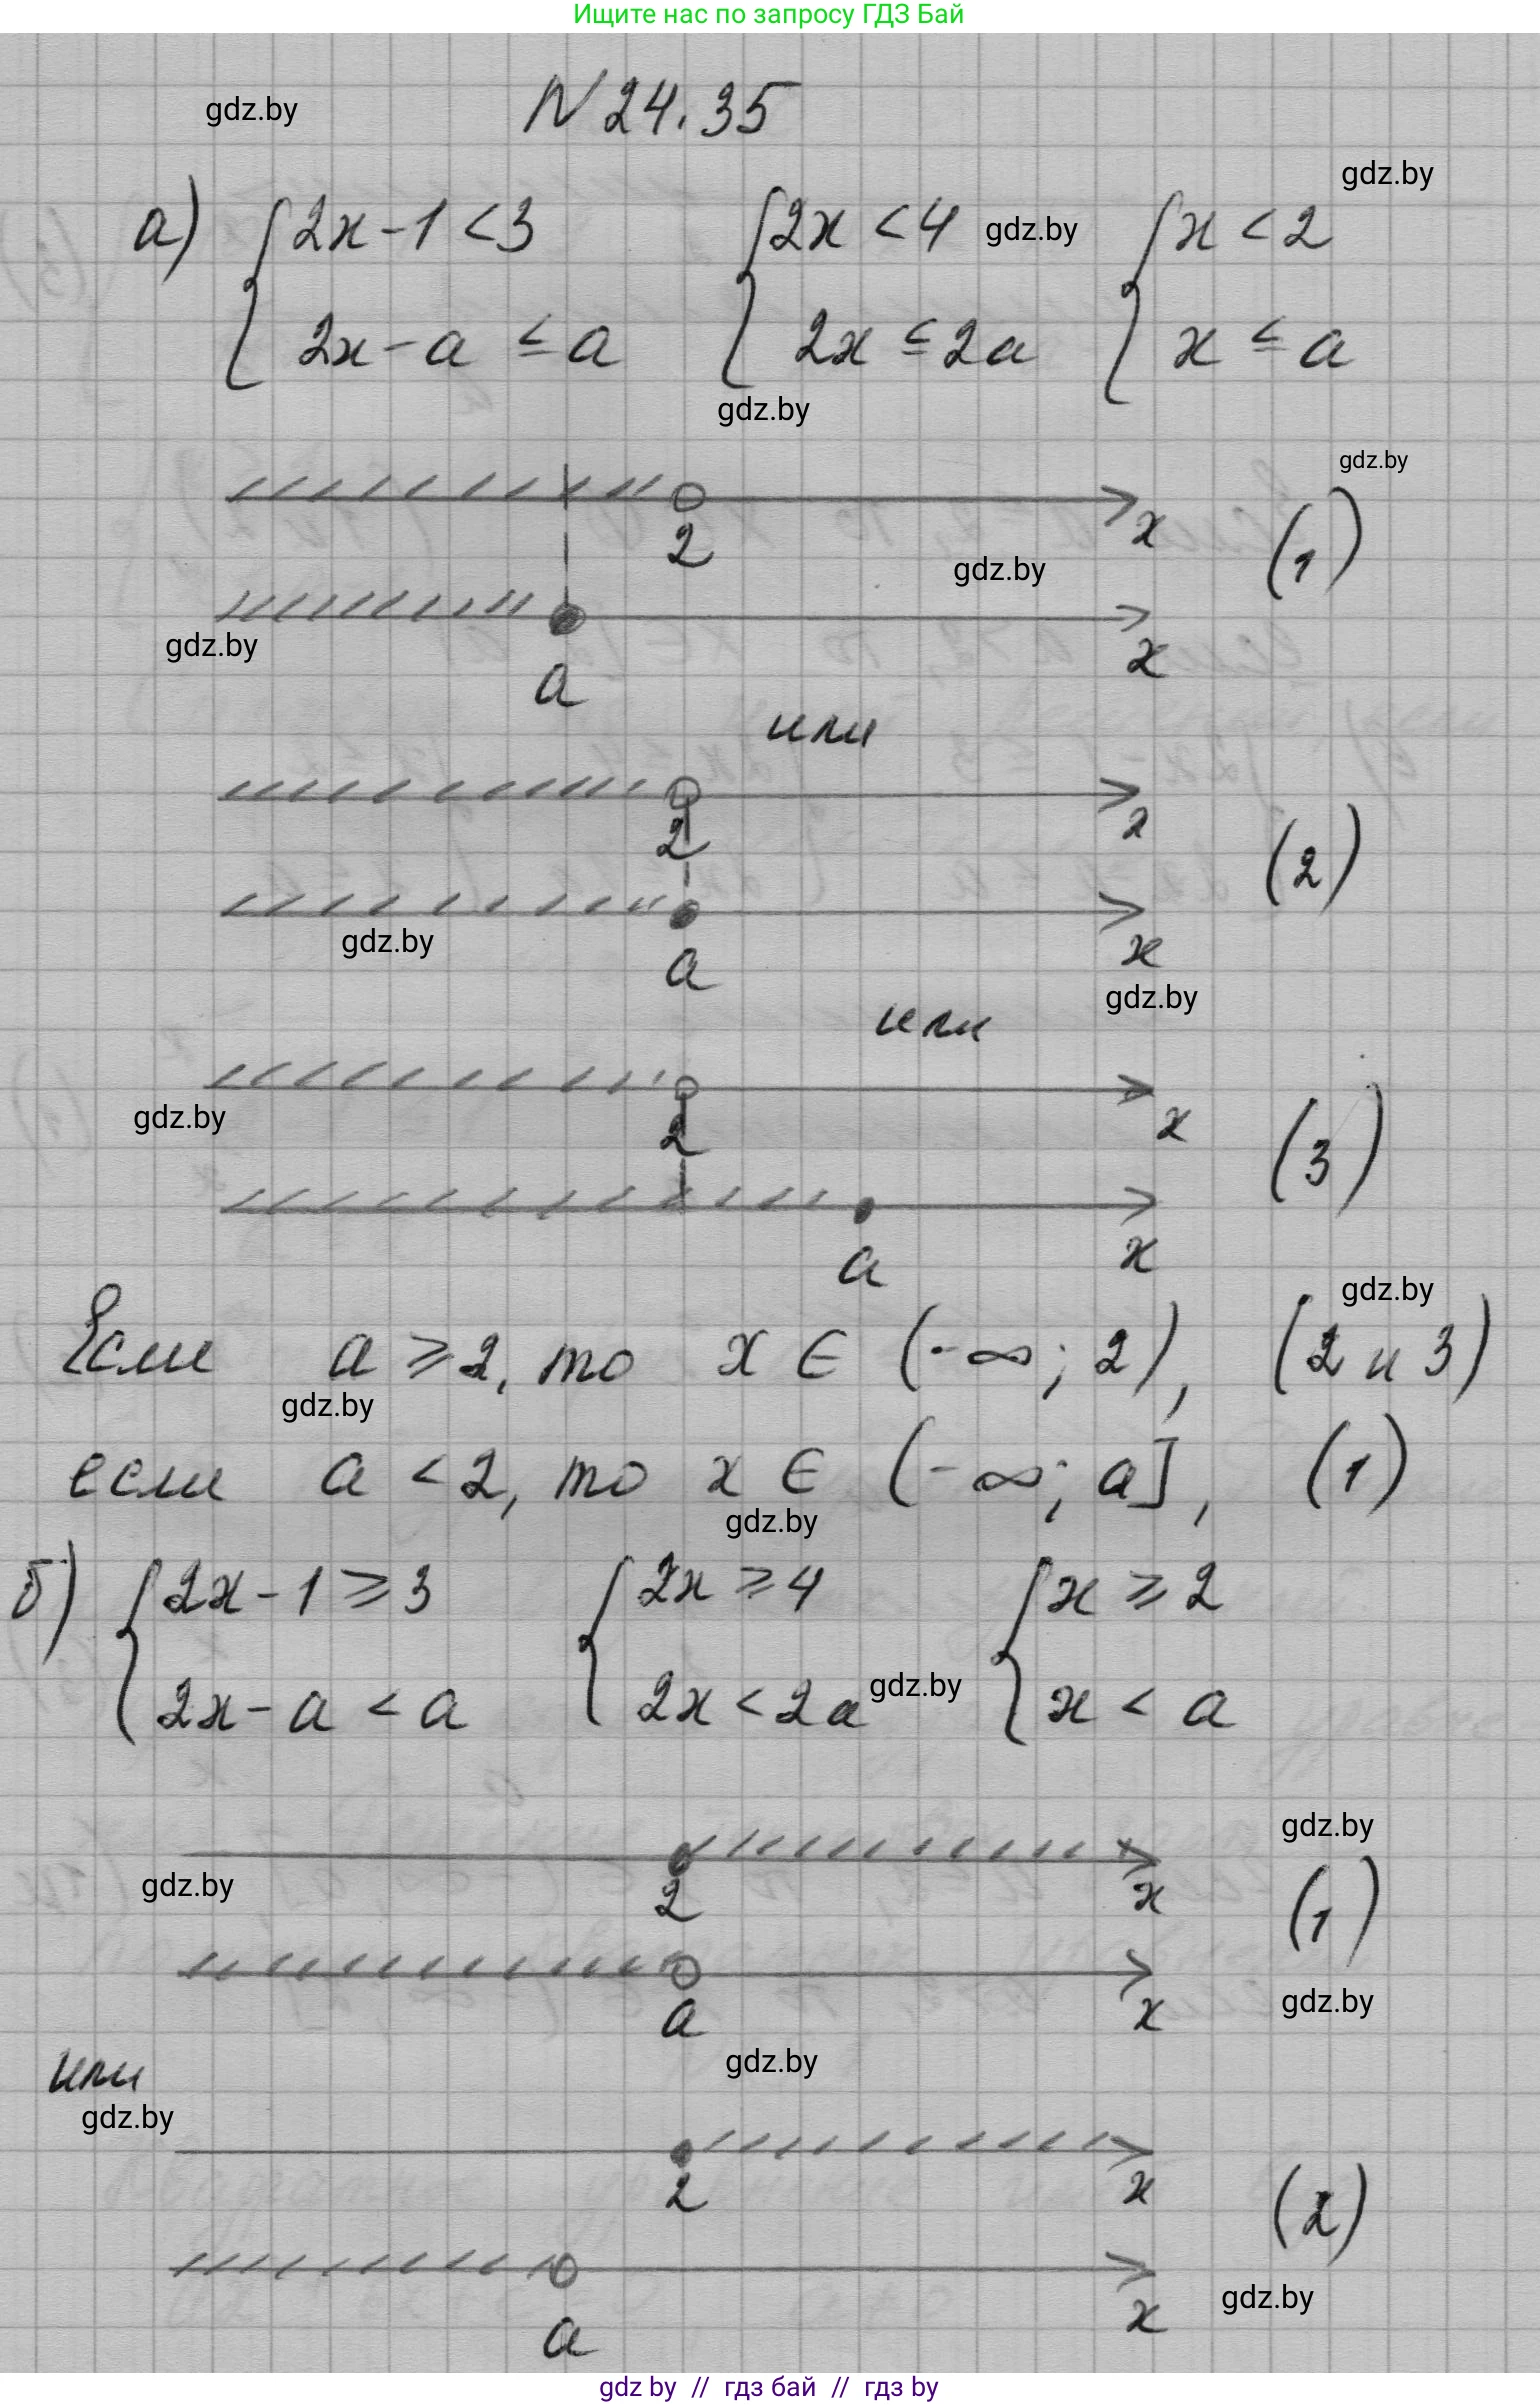 Ищите нас по запросу ГДЗ Бай
gdz.by
N 24.35
gdz.by
а) { 2x - 1 < 3 { 2x < 4 gdz.by { x < 2
2x - a ≤ a 2x ≤ 2a x ≤ a
gdz.by
gdz.by
2 x (1)
gdz.by
gdz.by
a x
или
2 x (2)
gdz.by
a x
gdz.by
или
gdz.by
2 x (3)
a x
gdz.by
Если a ≥ 2, то x ∈ (-∞; 2), (2 и 3)
gdz.by
если a < 2, то x ∈ (-∞; a], (1)
gdz.by
б) { 2x - 1 ≥ 3 { 2x ≥ 4 { x ≥ 2
2x - a < a 2x < 2a gdz.by x < a
gdz.by
gdz.by
2 x (1)
a x gdz.by
gdz.by
или
gdz.by
2 x (2)
gdz.by
a x
gdz by // гдз бай // гдз by